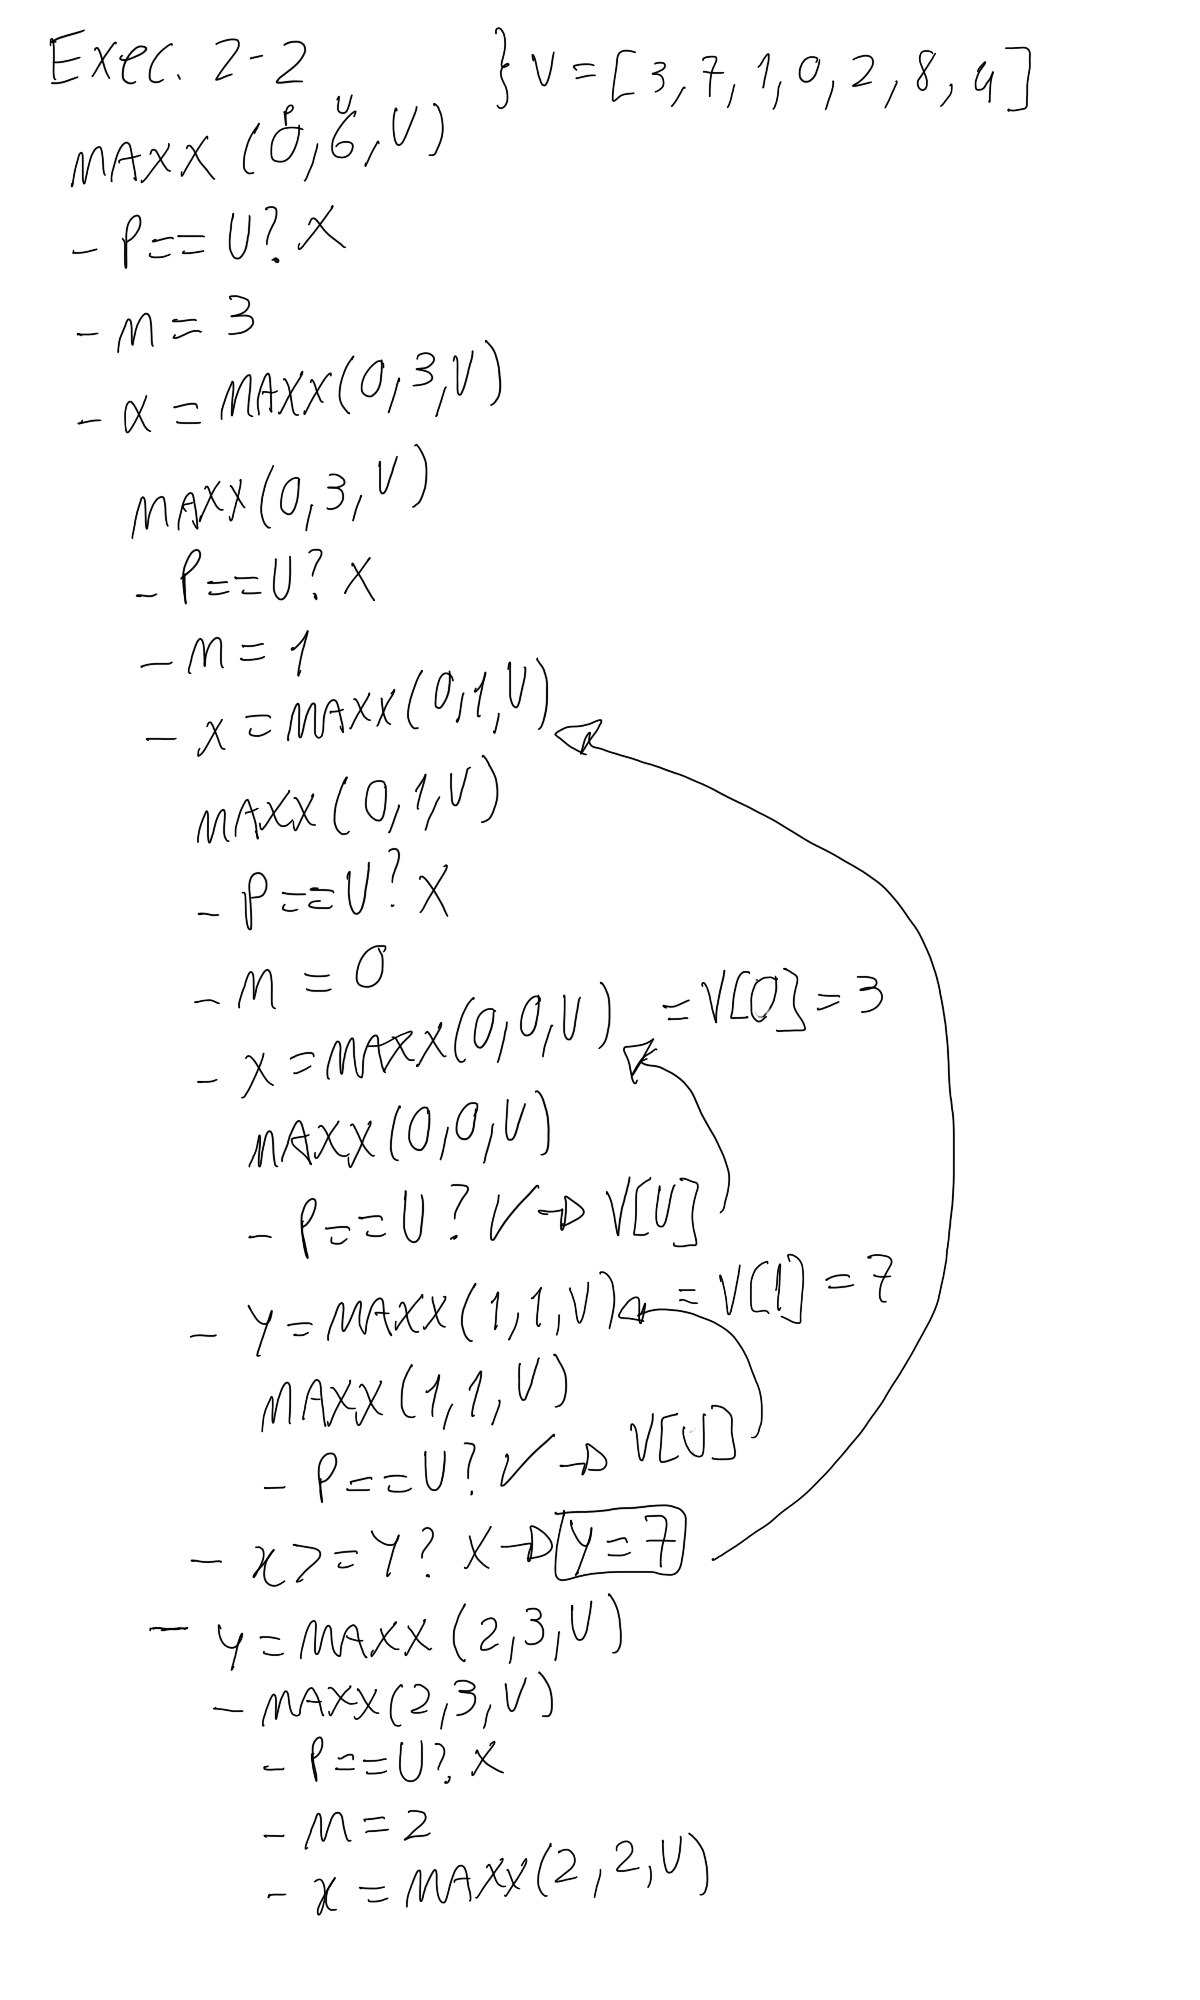 Exec. 2-2 } V = [3, 7, 1, 0, 2, 8, 4]
P U
MAXX (0, 6, V)
- P == U? X
- m = 3
- x = MAXX(0, 3, V)
MAXX(0, 3, V)
- P == U? X
- m = 1
- x = MAXX(0, 1, V)
MAXX(0, 1, V)
- P == U? X
- m = 0
- x = MAXX(0, 0, V) = V[0] = 3
MAXX(0, 0, V)
- P == U? ✓ → V[U]
- Y = MAXX(1, 1, V) = V[1] = 7
MAXX(1, 1, V)
- P == U? ✓ → V[U]
- x >= Y? X → Y = 7
- y = MAXX(2, 3, V)
- MAXX(2, 3, V)
- P == U? X
- m = 2
- x = MAXX(2, 2, V)